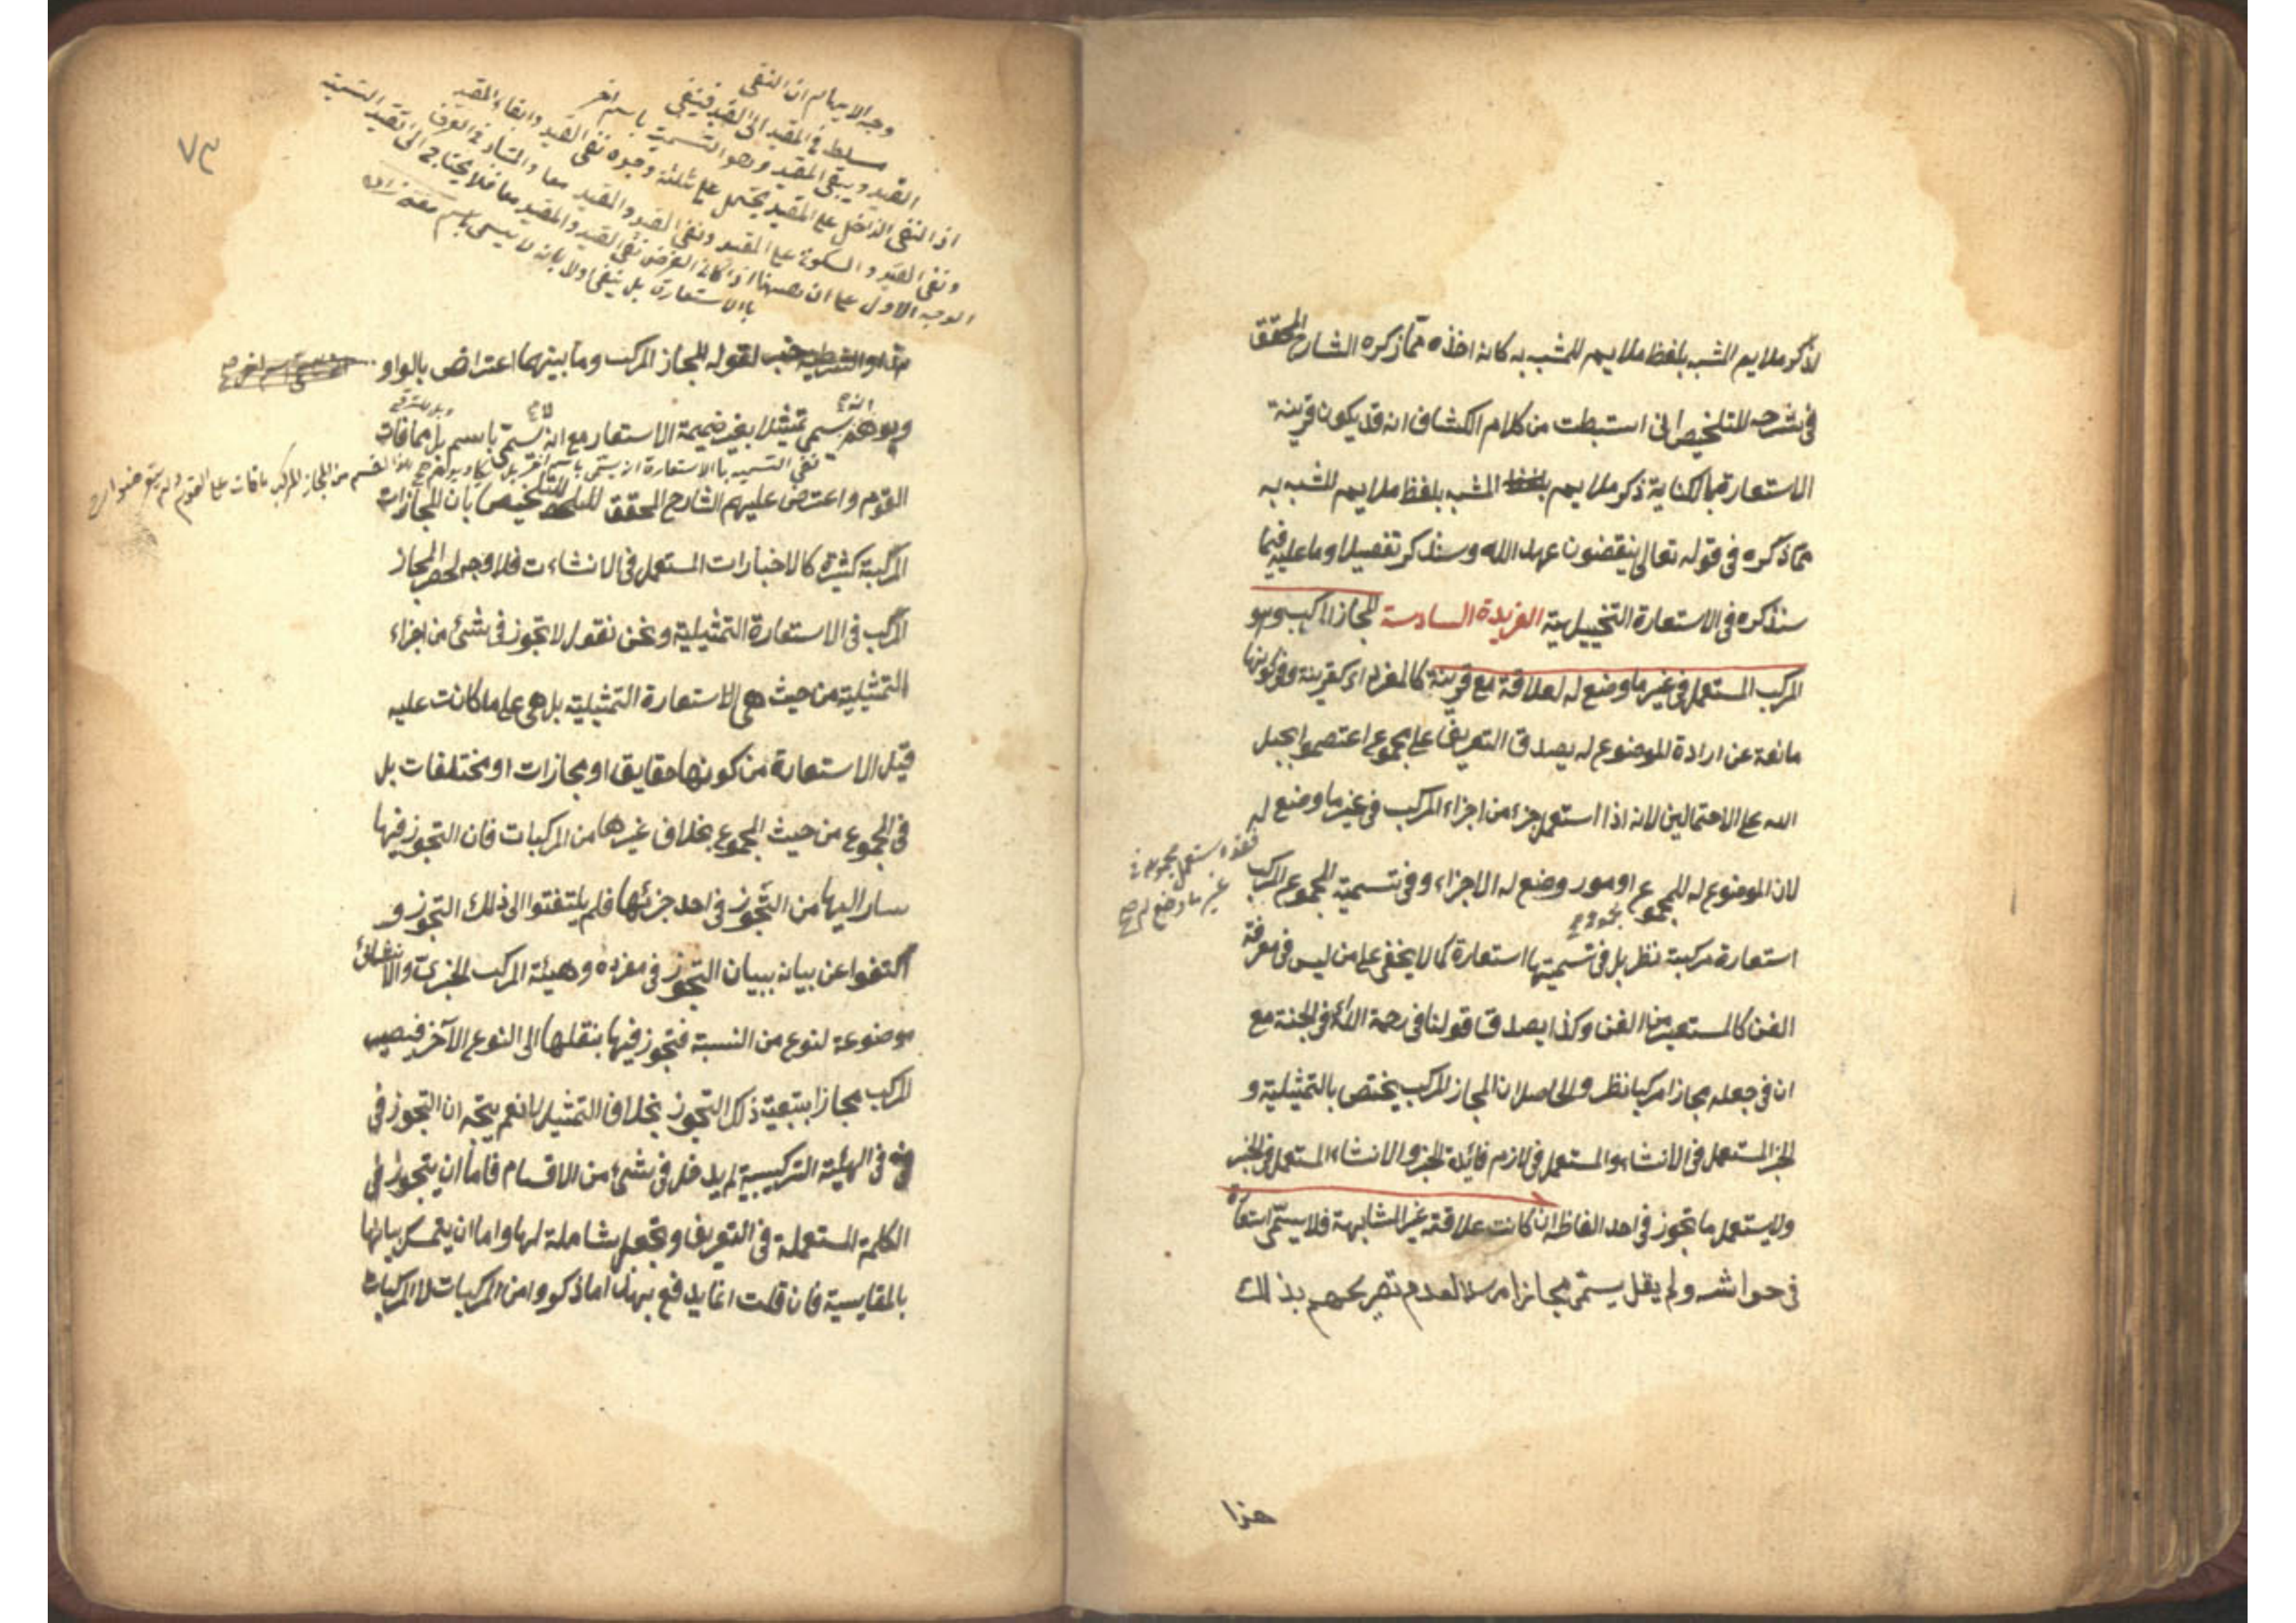 لذكر ملايم المشبه بلفظ ملايم للمشبه به كانه اخذه مما ذكره الشارح المحقق
في شرحه للتلخيص اني استنبطت من كلام الكشاف انه قد يكون قرينة
الاستعارة بالكناية ذكر ملايم المشبه بلفظ ملايم المشبه به
مما ذكره في قوله تعالى ينقضون عهد الله وسنذكر تفصيله وما عليه فيما
سنذكره في الاستعارة التخييلية الفريدة السادسة المجاز المركب وهو
المركب المستعمل في غير ما وضع له لعلاقة مع قرينة كالمفرد اي كقرينة في كونها
مانعة عن ارادة الموضوع له يصدق التعريف على مجموع اعتصموا بحبل
الله على الاحتمالين لانه اذا استعمل جزء من اجزاء المركب في غير ما وضع له
فقد استعمل مجموعه في
غير ما وضع له صح
لان الموضوع له للمجموع امور وضع له الاجزاء وفي تسمية المجموع المركب
استعارة مركبة نظر بل في تسميتها استعارة كما لا يخفى على من ليس في معرفة
الفن كالمستعير من الفن وكذا يصدق قولنا في رحمة الله اي في الجنة مع
ان في جعله مجازا مركبا نظر والحاصل ان المجاز المركب يختص بالتمثيلية و
الخبر المستعمل في الانشاء والمستعمل في لازم فائدة الخبر والانشاء المستعمل في الخبر
ولا يستعمل ما تجوز في احد الفاظه ان كانت علاقته غير المشابهة فلا يسمى استعارة
في حواشه ولم يقل يسمى مجازا مرسلا لعدم تصريحهم بذلك
هذا
٧٣
وجه الايهام ان النفي
مسلط في المقيد الى القيد فينفي
القيد ويبقى المقيد وهو التسمية باسم اخر
اذ النفي الداخل على المقيد يحتمل على ثلثة وجوه نفي القيد وابقاء المقيد
ونفي القيد والسكوت على المقيد ونفي القيد والمقيد معا والمتبادر في العرف
الوجه الاول على ان ههنا اذا كان الغرض نفي القيد والمقيد معا فلا يحتاج الى تقييد التسمية
بالاستعارة بل ينفي اولا بانه لا يسمى باسم
لقوله المجاز المركب وما بينهما اعتراض بالواو
ويوهم يسمى تمثيلا بغير ضميمة الاستعار مع انه يسمى باسم بل مما فات
نفي التسمية بالاستعارة ان يسمى باسم اخر بل
القوم واعترض عليهم الشارح المحقق للتلخيص بان المجازات
المركبة كثيرة كالاخبارات المستعمل في الانشاءت فلا وجه لحصر المجاز
المركب في الاستعارة التمثيلية ونحن نقول لا تجوز في شئ من اجزاء
التمثيلية من حيث هي الاستعارة التمثيلية بل هي على ما كانت عليه
قبل الاستعارة من كونها حقايق او مجازات او مختلفات بل
في المجموع من حيث المجموع بخلاف غيرها من المركبات فان التجوز فيها
سار اليها من التجوز في احد جزئها فلم يلتفتوا الى ذلك التجوز و
اكتفوا عن بيانه ببيان التجوز في مفرده وهيئة المركب الخبري والانشائي
موضوعة لنوع من النسبة فتجوز فيها بنقلها الى النوع الآخر فنصيب
المركب مجازا بتبعية ذلك التجوز بخلاف التمثيل نعم يتجه ان التجوز في
في الهيئة التركيبية لم يدخل في شئ من الاقسام فاما ان يتجوز في
الكلمة المستعملة في التعريف وتجعل شاملة لها واما ان يتمسك بيانها
بالمقايسة فان قلت انما يدفع بهذا ما ذكروا من المركبات لا المركبات